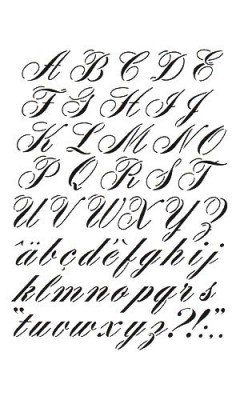 A B C D E
F G H I J
K L M N O
P Q R S T
U V W X Y Z
âäbçdèfghij
klmnopqrs
"tuvwxyz?!:,"